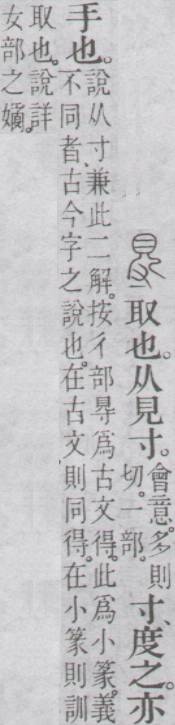 㝵取也。从見寸。會意。多則切。一部。寸、度之。亦
手也。
說从寸、兼此二解。按彳部㝵爲古文得。此爲小篆。義
不同者、古今字之說也。在古文、則同得。在小篆則訓
取也。說詳
女部之嬻。